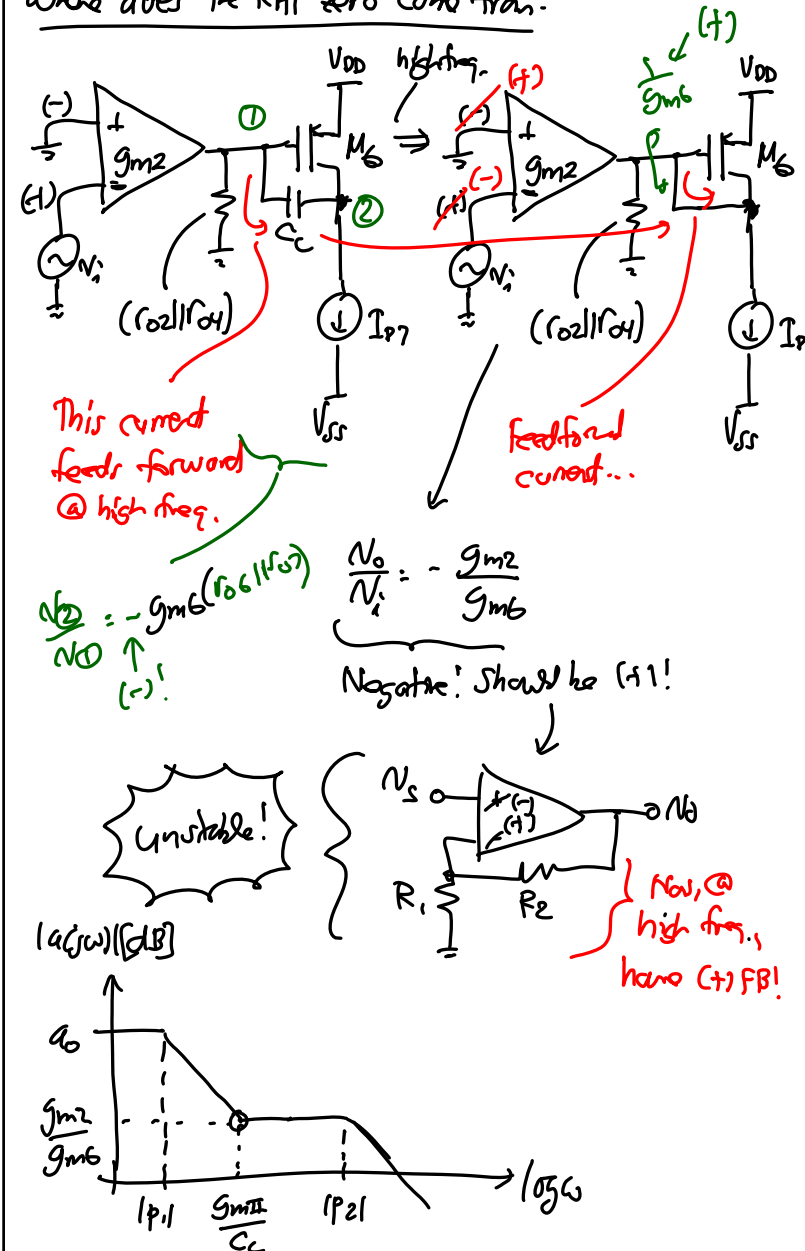 Where does the RHP zero come from.
(-)
+
gm2
-
(-1)
Ni
(r02||r04)
①
Cc
②
VDD
M6
IP7
VSS
high freq.
⇒
(+)
(-)
+
gm2
-
(-)
Ni
(r02||r04)
1/gm6
(+)
VDD
M6
VSS
This current
feeds forward
@ high freq.
feedforward
current...
N②/N① = -gm6(r06||r07)
(-)!
No/Ni = - gm2/gm6
Negative! Should be (+)!
Unstable!
Ns
+ (-)
- (+)
No
R1
R2
Now, @
high freq.,
have (+) FB!
|a(jω)|[dB]
a0
gm2/gm6
|p1|
gmII/Cc
|p2|
logω